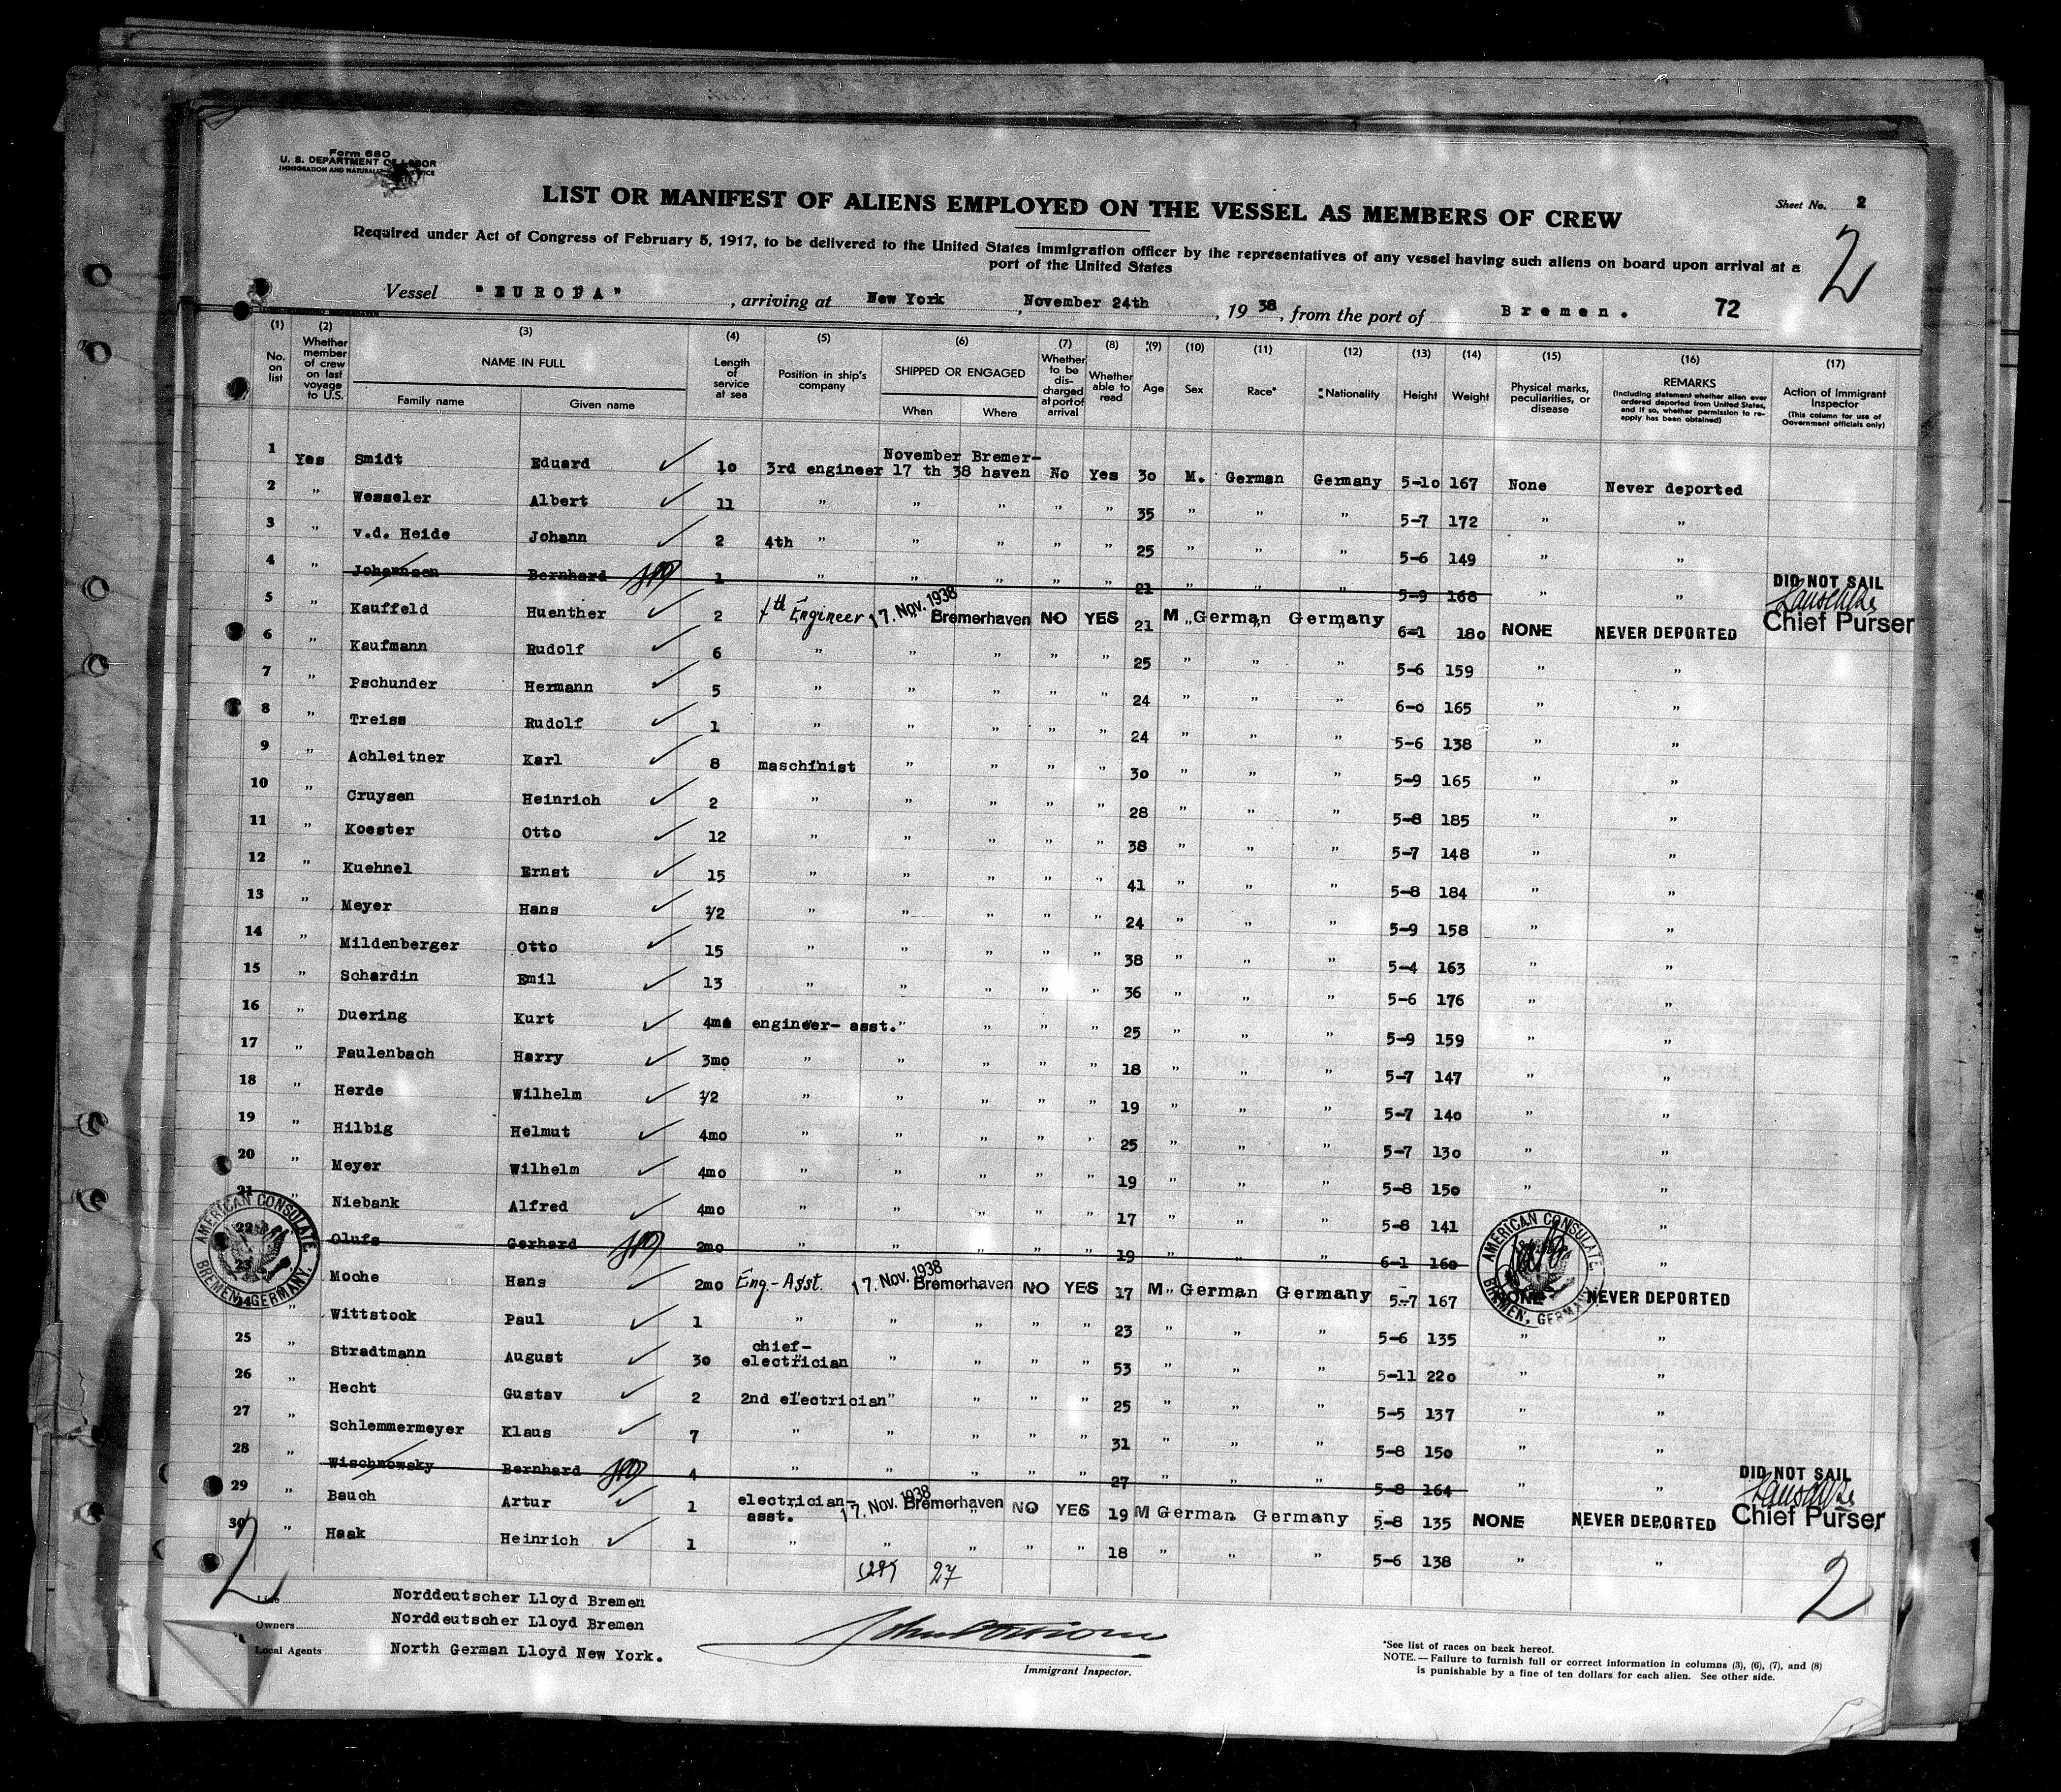 Form 680
U. S. DEPARTMENT OF LABOR
IMMIGRATION AND NATURALIZATION SERVICE
Sheet No. 2
LIST OR MANIFEST OF ALIENS EMPLOYED ON THE VESSEL AS MEMBERS OF CREW
2
Required under Act of Congress of February 5, 1917, to be delivered to the United States immigration officer by the representatives of any vessel having such aliens on board upon arrival at a
port of the United States
Vessel "EUROPA", arriving at New York, November 24th, 1938, from the port of Bremen. 72
(1) (2) (3) (4) (5) (6) (7) (8) (9) (10) (11) (12) (13) (14) (15) (16) (17)
No. on list Whether member of crew on last voyage to U.S. NAME IN FULL Family name Given name Length of service at sea Position in ship's company SHIPPED OR ENGAGED When Where Whether to be discharged at port of arrival Whether able to read Age Sex Race* Nationality Height Weight Physical marks, peculiarities, or disease REMARKS (Including statement whether alien ever ordered deported from United States, and if so, whether permission to reapply has been obtained) Action of Immigrant Inspector (This column for use of Government officials only)
1 Yes Smidt Eduard ✓ 10 3rd engineer November 17 th 38 Bremerhaven No Yes 30 M. German Germany 5-10 167 None Never deported
2 " Wesseler Albert ✓ 11 " " " " " 35 " " " 5-7 172 " "
3 " v.d. Heide Johann ✓ 2 4th " " " " " 25 " " " 5-6 149 " "
4 " Johannsen Bernhard 1 " " " " " 21 " " " 5-9 168 " " DID NOT SAIL
5 " Kauffeld Huenther ✓ 2 4th Engineer 17. Nov. 1938 Bremerhaven NO YES 21 M German Germany 6-1 180 NONE NEVER DEPORTED Chief Purser
6 " Kaufmann Rudolf ✓ 6 " " " " " 25 " " " 5-6 159 " "
7 " Pschunder Hermann ✓ 5 " " " " " 24 " " " 6-0 165 " "
8 " Treiss Rudolf ✓ 1 " " " " " 24 " " " 5-6 138 " "
9 " Achleitner Karl ✓ 8 maschinist " " " " 30 " " " 5-9 165 " "
10 " Cruysen Heinrich ✓ 2 " " " " " 28 " " " 5-8 185 " "
11 " Koester Otto ✓ 12 " " " " " 38 " " " 5-7 148 " "
12 " Kuehnel Ernst ✓ 15 " " " " " 41 " " " 5-8 184 " "
13 " Meyer Hans ✓ 1/2 " " " " " 24 " " " 5-9 158 " "
14 " Mildenberger Otto ✓ 15 " " " " " 38 " " " 5-4 163 " "
15 " Schardin Emil ✓ 13 " " " " " 36 " " " 5-6 176 " "
16 " Duering Kurt ✓ 4mo engineer- asst. " " " " 25 " " " 5-9 159 " "
17 " Faulenbach Harry ✓ 3mo " " " " " 18 " " " 5-7 147 " "
18 " Herde Wilhelm ✓ 1/2 " " " " " 19 " " " 5-7 140 " "
19 " Hilbig Helmut ✓ 4mo " " " " " 25 " " " 5-7 130 " "
20 " Meyer Wilhelm ✓ 4mo " " " " " 19 " " " 5-8 150 " "
21 " Niebank Alfred ✓ 4mo " " " " " 17 " " " 5-8 141 "
22 Olufs Gerhard 2mo " " " " " 19 " " " 6-1 160 "
23 Moche Hans ✓ 2mo Eng.-Asst. 17. Nov. 1938 Bremerhaven NO YES 17 M German Germany 5-7 167 NONE NEVER DEPORTED
24 " Wittstock Paul ✓ 1 " " " " " 23 " " " 5-6 135 " "
25 " Stradtmann August ✓ 30 chief-electrician " " " " 53 " " " 5-11 220 " "
26 " Hecht Gustav ✓ 2 2nd electrician " " " " 25 " " " 5-5 137 " "
27 " Schlemmermeyer Klaus ✓ 7 " " " " " 31 " " " 5-8 150 " "
28 " Wischnowsky Bernhard 4 " " " " " 27 " " " 5-8 164 " " DID NOT SAIL
29 " Bauch Artur ✓ 1 electrician-asst. 17. Nov. 1938 Bremerhaven NO YES 19 M German Germany 5-8 135 NONE NEVER DEPORTED Chief Purser
30 " Haak Heinrich ✓ 1 " " " " " 18 " " " 5-6 138 " "
AMERICAN CONSULATE BREMEN, GERMANY.
AMERICAN CONSULATE BREMEN, GERMANY.
27
2
2
Line Norddeutscher Lloyd Bremen
Owners Norddeutscher Lloyd Bremen
Local Agents North German Lloyd New York.
Immigrant Inspector.
*See list of races on back hereof.
NOTE.—Failure to furnish full or correct information in columns (3), (6), (7), and (8)
is punishable by a fine of ten dollars for each alien. See other side.